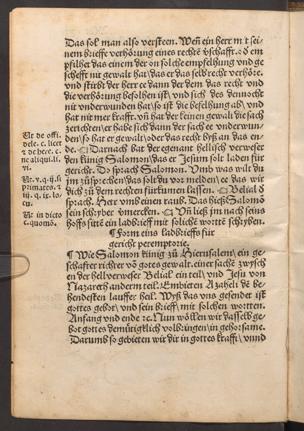 Das sol man also versteen. Weñ ein herr mit sei
nem brieffe verhörung eines rechtẽ vschafft. ð em
pfilhet das einem der on solche empfelhung vnd ge
schefft nit gewalt hat/das er das selb recht verhöre.
vnd stirbt der herr ee dann der dem das recht vnd
die verhörung befolhen ist/ vnd sich des dennocht
nit vnderwunden hat/so ist die befelhung ab/ vnd
hat nit mer krafft. vñ hat der keinen gewalt die sach
zerichten/er habe sich dann der sach ee vnderwun/
den/so hat er gewalt/oder das recht byß an das en-
de. Darnach bat der egenant hellisch verweser
den künig Salomon/das er Jesum solt laden für
gericht. Do sprach Salomon. Vnnd was wilt du
im zůsprechen/das solt du vor melden/ee das wir
dich zů dem rechten fürkumen lassen. Belial ð
sprach. Herr vmb einen raub. Das hieß Salomõ
sein schryber vmercken. Vñ ließ im nach seins
hoffs sitte ein ladbrieff mit solichẽ wortẽ schryben.
¶ Form eins ladbrieffs für
gericht peremptorie.
¶ Wie Salomon künig zů Hierusalem/ ein ge-
schaffter richter võ gottes gewalt. einer sache zwysch
en der hellverweser Belial ein teil/ vnd Jesu von
Nazareth anderm teil. Embieten Azaheli dẽ be
hendesten lauffer heil. Wyß das vns gesendet ist
gottes gebot/ vnd sein brieff/ mit solichen wortten.
Anfang vnd ende ⁊c. Nun wöllen wir dasselb ge
bot gottes demůtigklich volbringen/ in gehorsame.
Darumb so gebieten wir dir in gottes krafft/ vnnd
Ut de offi.
dele. c. licet
⁊ de here. c.
ne aliqui. li.
vi.
Ut in dicto
c. quomõ.